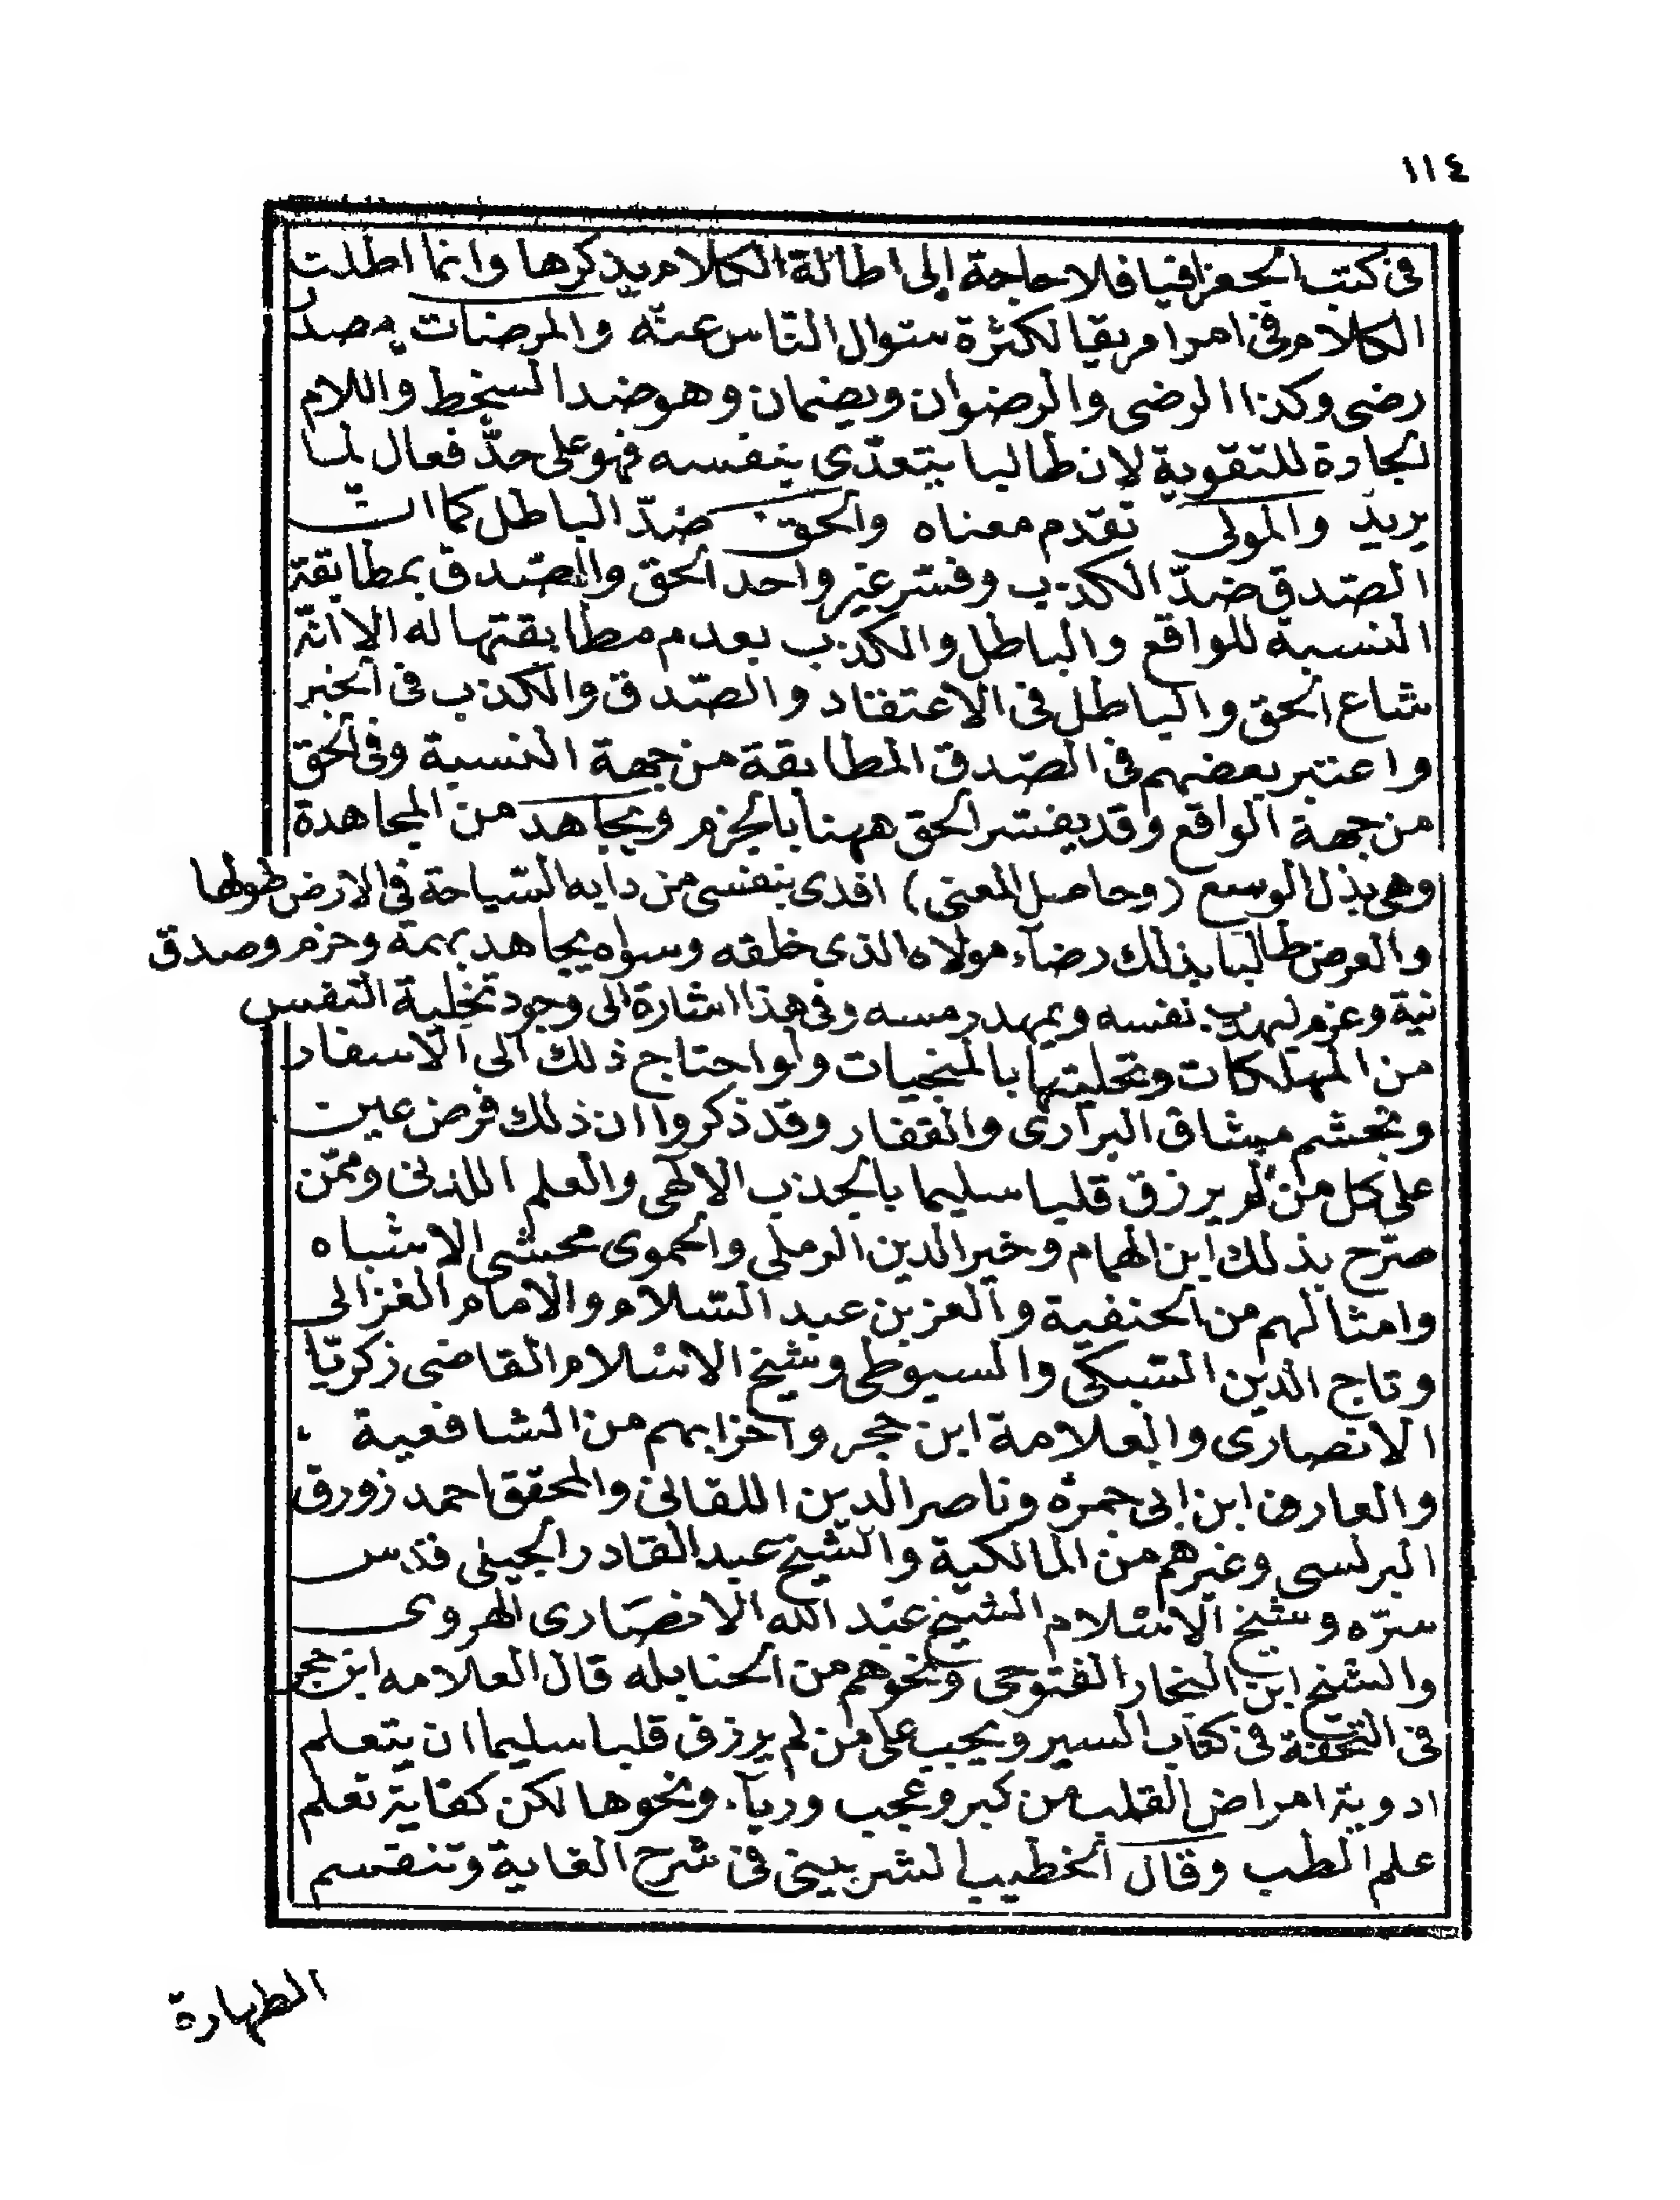 ١١٤
فى كتب الجغرافيا فلا حاجة إلى اطالة الكلام بذكرها وانما اطلت
الكلام فى امر امريقا لكثرة سئوال النّاس عنه والمرضات مصدر
رضى وكذا الرضى والرضوان ويضمان وهو ضد السخط واللام
الجارة للتقوية لان طالبا يتعدّى بنفسه فهو على حدّ فعال لما
يريد والمولى تقدم معناه والحق ضدّ الباطل كما ان
الصّدق ضدّ الكذب وفسّر غير واحد الحق والصّدق بمطابقة
النسبة للواقع والباطل والكذب بعدم مطابقتها له الا انّه
شاع الحق والباطل فى الاعتقاد والصّدق والكذب فى الخبر
واعتبر بعضهم فى الصّدق المطابقة من جهة النسبة وفى الحق
من جهة الواقع وقد يفسّر الحق ههنا بالجزم ويجاهد من المجاهدة
وهى بذل الوسع (وحاصل المعنى) افدى بنفسى من دابه السّياحة فى الارض طولها
والعرض طالبا بذلك رضاء مولاه الذى خلقه وسواه يجاهد بهمة وحزم وصدق
نية وعزم ليهذب نفسه ويمهد رمسه وفى هذا اشارة الى وجود تخلية النفس
من المهلكات وتحليتها بالمنجيات ولو احتاج ذلك الى الاسفار
وتجشم مشاق البرارى والقفار وقد ذكروا ان ذلك فرض عين
على كل من لم يرزق قلبا سليما بالجذب الالهى والعلم اللدنى وممّن
صرّح بذلك ابن الهمام وخير الدين الرملى والحموى محشى الاشباه
وامثالهم من الحنفية والعز بن عبد السّلام والامام الغزالى
وتاج الدين السّبكى والسيوطى وشيخ الاسلام القاضى زكريّا
الانصارى والعلامة ابن حجر واحزابهم من الشافعية
والعارف ابن ابى جمرة وناصر الدين اللقانى والمحقق احمد زورق
البرلسى وغيرهم من المالكية والشّيخ عبد القادر الجيلى قدّس
سرّه وشيخ الاسلام الشيخ عبد الله الانصارى الهروى
والشيخ ابن النجار الفتوحى ونحوهم من الحنابله قال العلامه ابن حجر
فى التحفة فى كتاب السير ويجب على من لم يرزق قلبا سليما ان يتعلم
ادوية امراض القلب من كبر وعجب ورياء ونحوها لكن كفاية تعلم
علم الطب وقال الخطيب الشربينى فى شرح الغاية وتنقسم
الطهارة